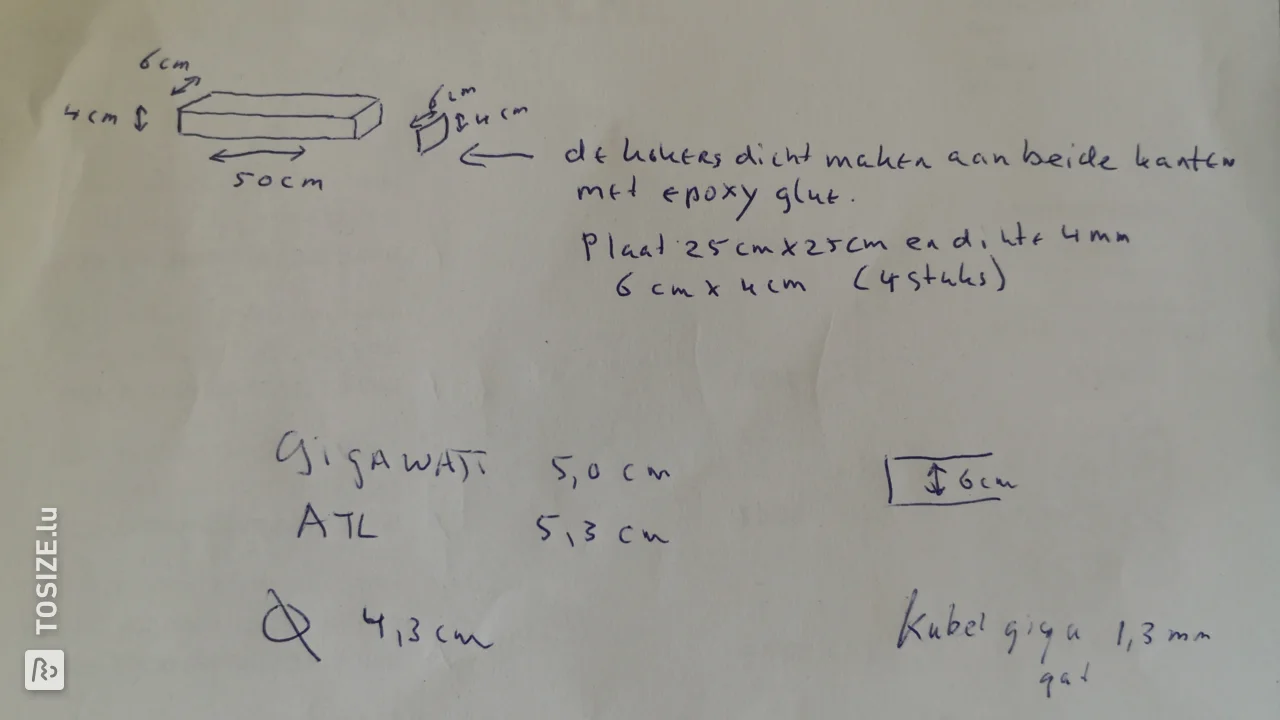 6cm
4cm
50cm
6cm
4cm
de kokers dicht maken aan beide kanten
met epoxy glue.
Plaat 25cm x 25cm en dikte 4mm
6 cm x 4cm (4 stuks)
GIGAWATT 5,0 cm
6cm
ATL 5,3 cm
Ø 4,3cm
Kabel giga 1,3mm
gat
TOSIZE.lu